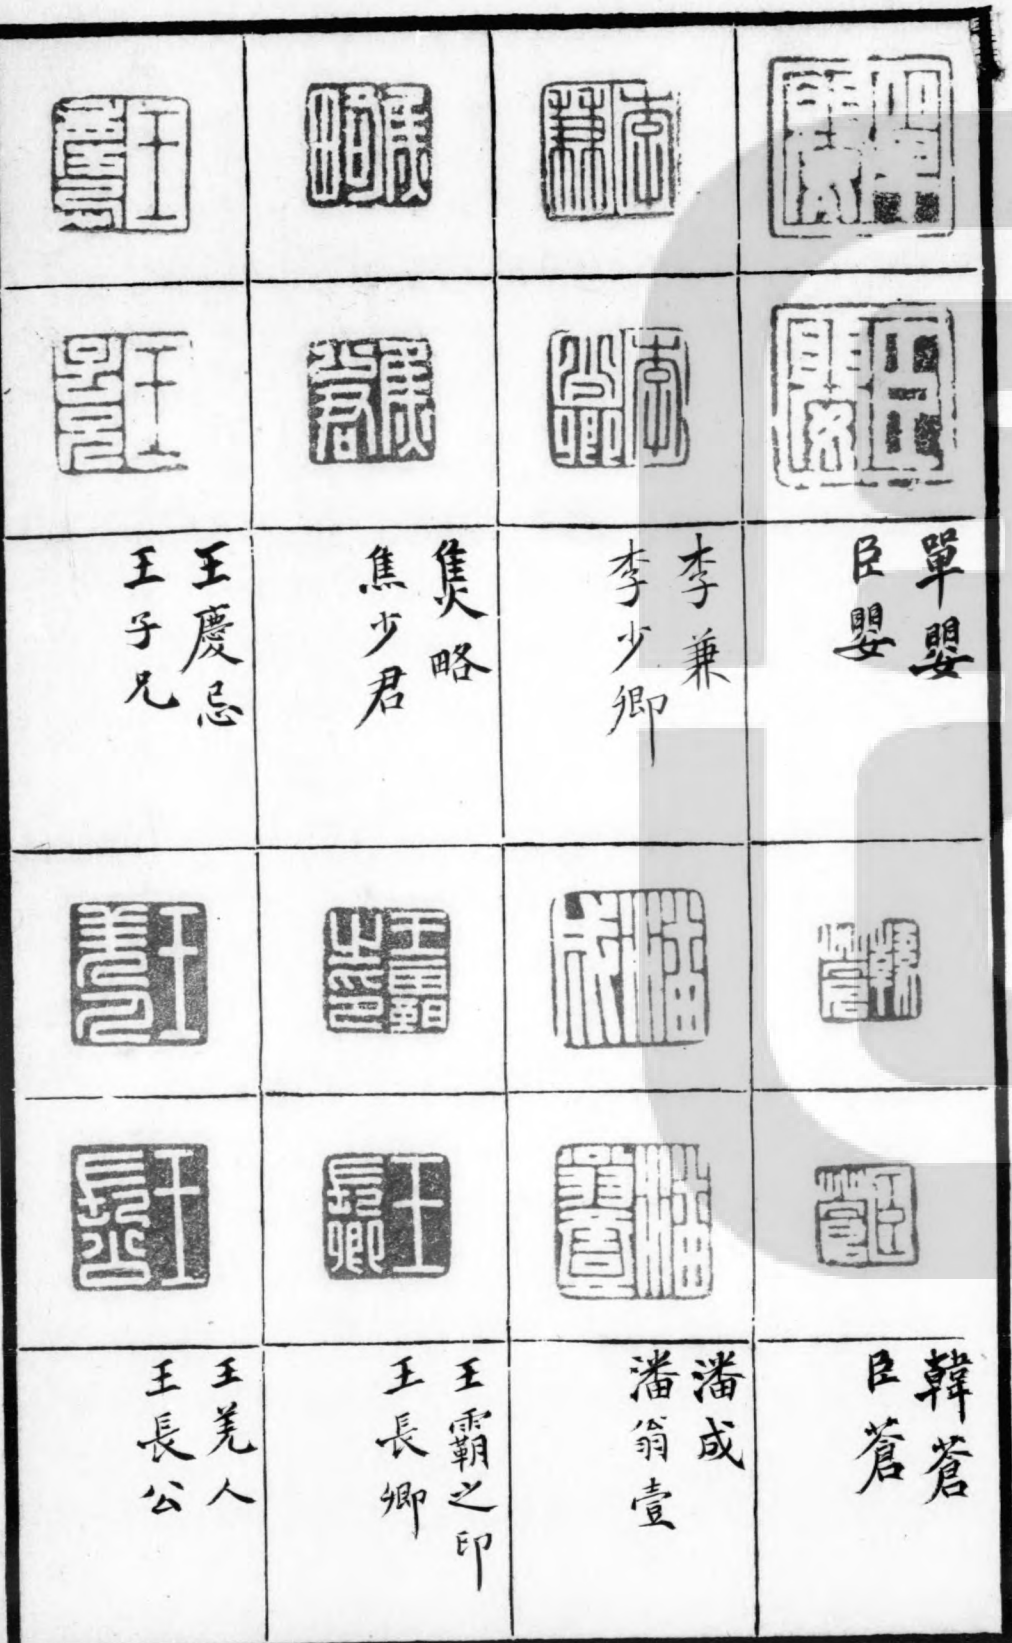 單嬰
臣嬰
李蒹
李少卿
焦略
焦少君
王慶忌
王子兄
韓蒼
臣蒼
潘成
潘翁壹
王霸之印
王長卿
王羌人
王長公